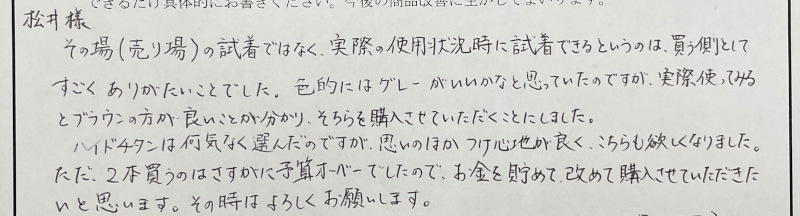 できるだけ具体的にお書きください。今後の商品改善に生かしてまいります。
松井様
その場(売り場)の試着ではなく、実際の使用状況時に試着できるというのは、買う側として
すごくありがたいことでした。色的にはグレーがいいかなと思っていたのですが、実際使ってみる
とブラウンの方が良いことが分かり、そちらを購入させていただくことにしました。
ハイドチタンは何気なく選んだのですが、思いのほかつけ心地が良く、こちらも欲しくなりました。
ただ、2本買うのはさすがに予算オーバーでしたので、お金を貯めて、改めて購入させていただきた
いと思います。その時はよろしくお願いします。